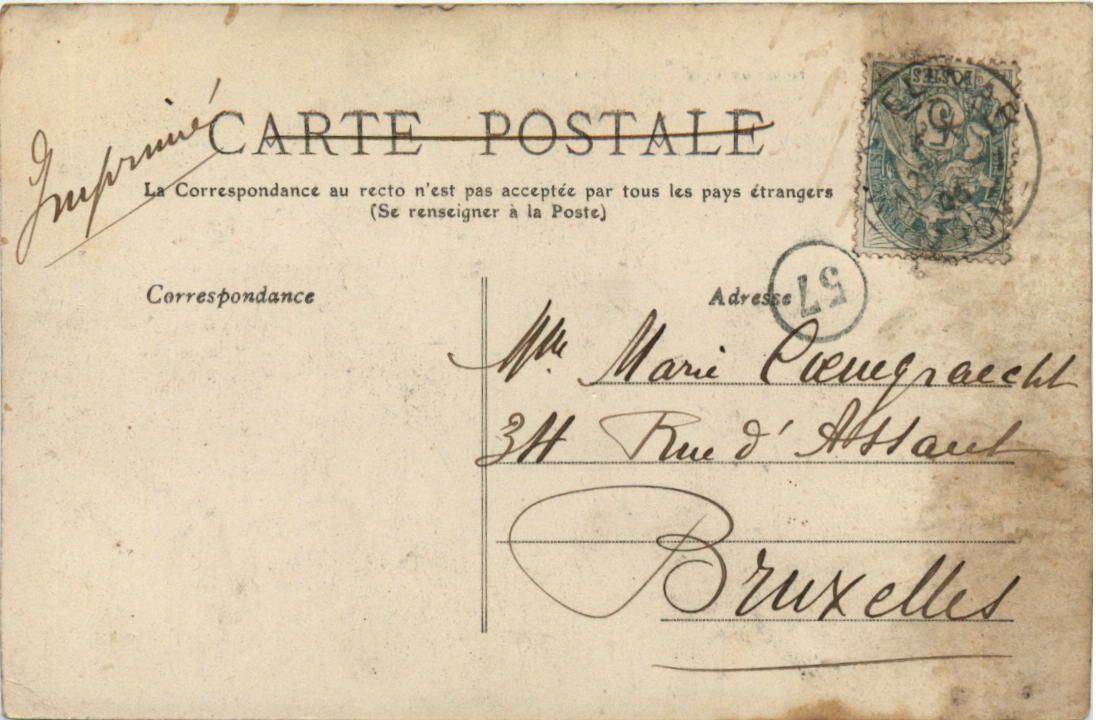 Imprimé
CARTE POSTALE
La Correspondance au recto n'est pas acceptée par tous les pays étrangers
(Se renseigner à la Poste)
Correspondance
Adresse
57
5
POSTES
Mlle Marie
34 Rue d'Assaut
Bruxelles